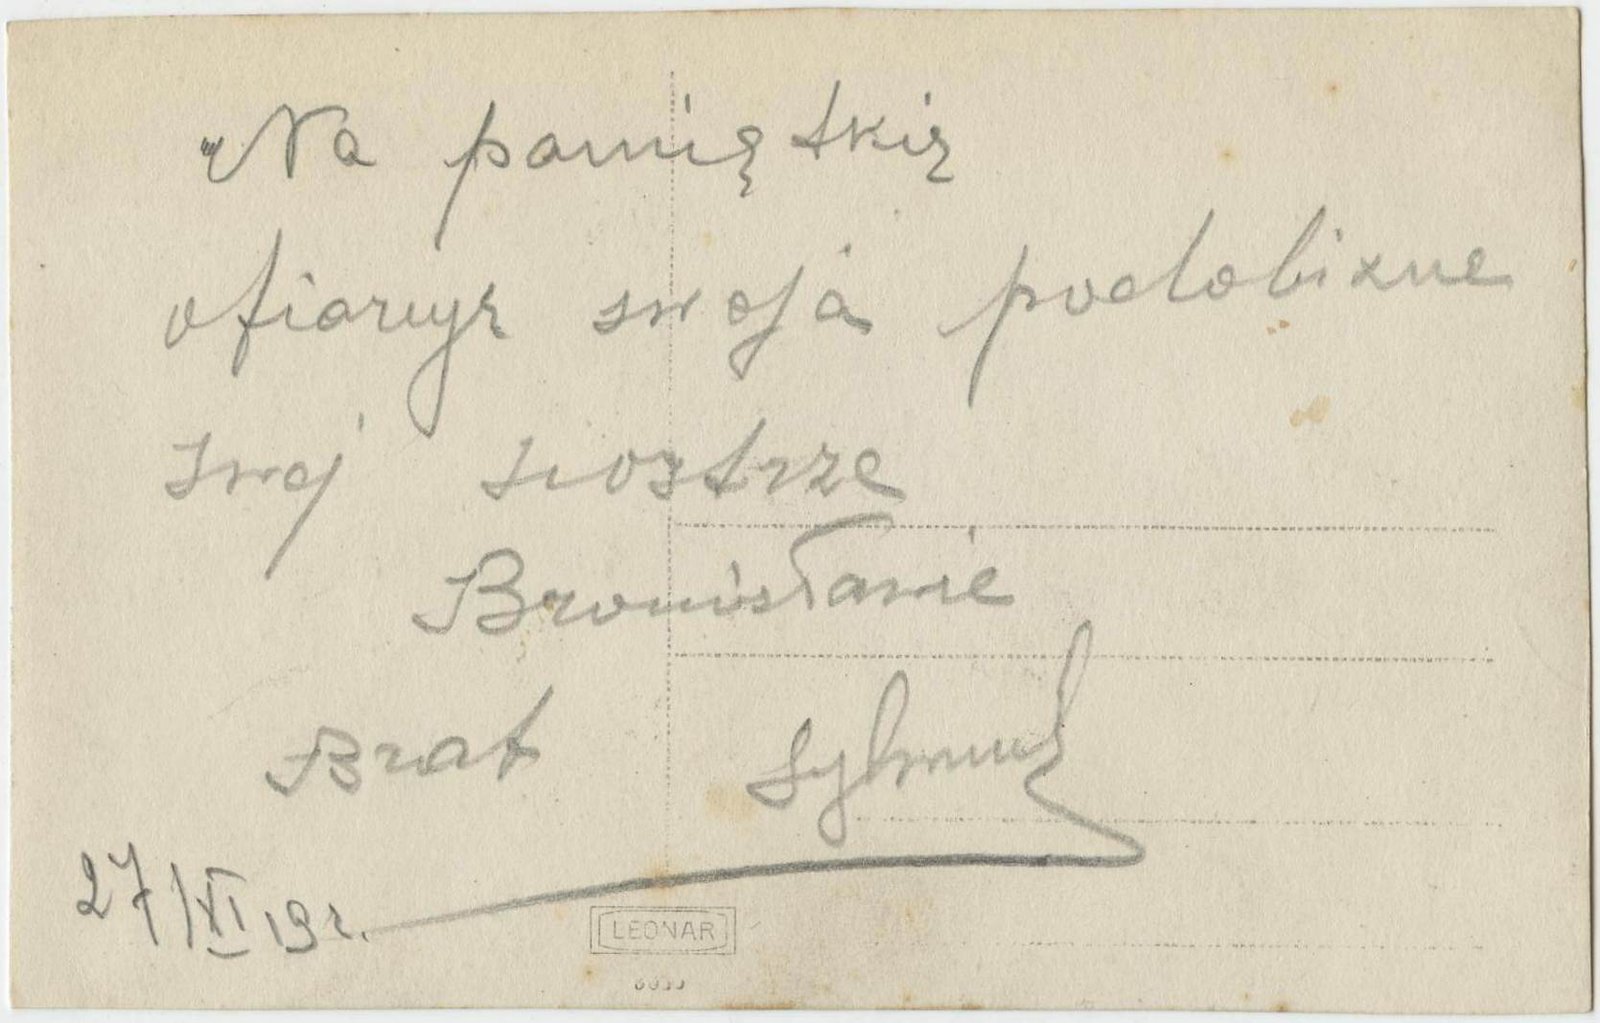 Na pamiętkię
ofiaruję swoja podobizne
swej siostrze
Bronisławie
Brat
27/XI 19 r.
LEONAR